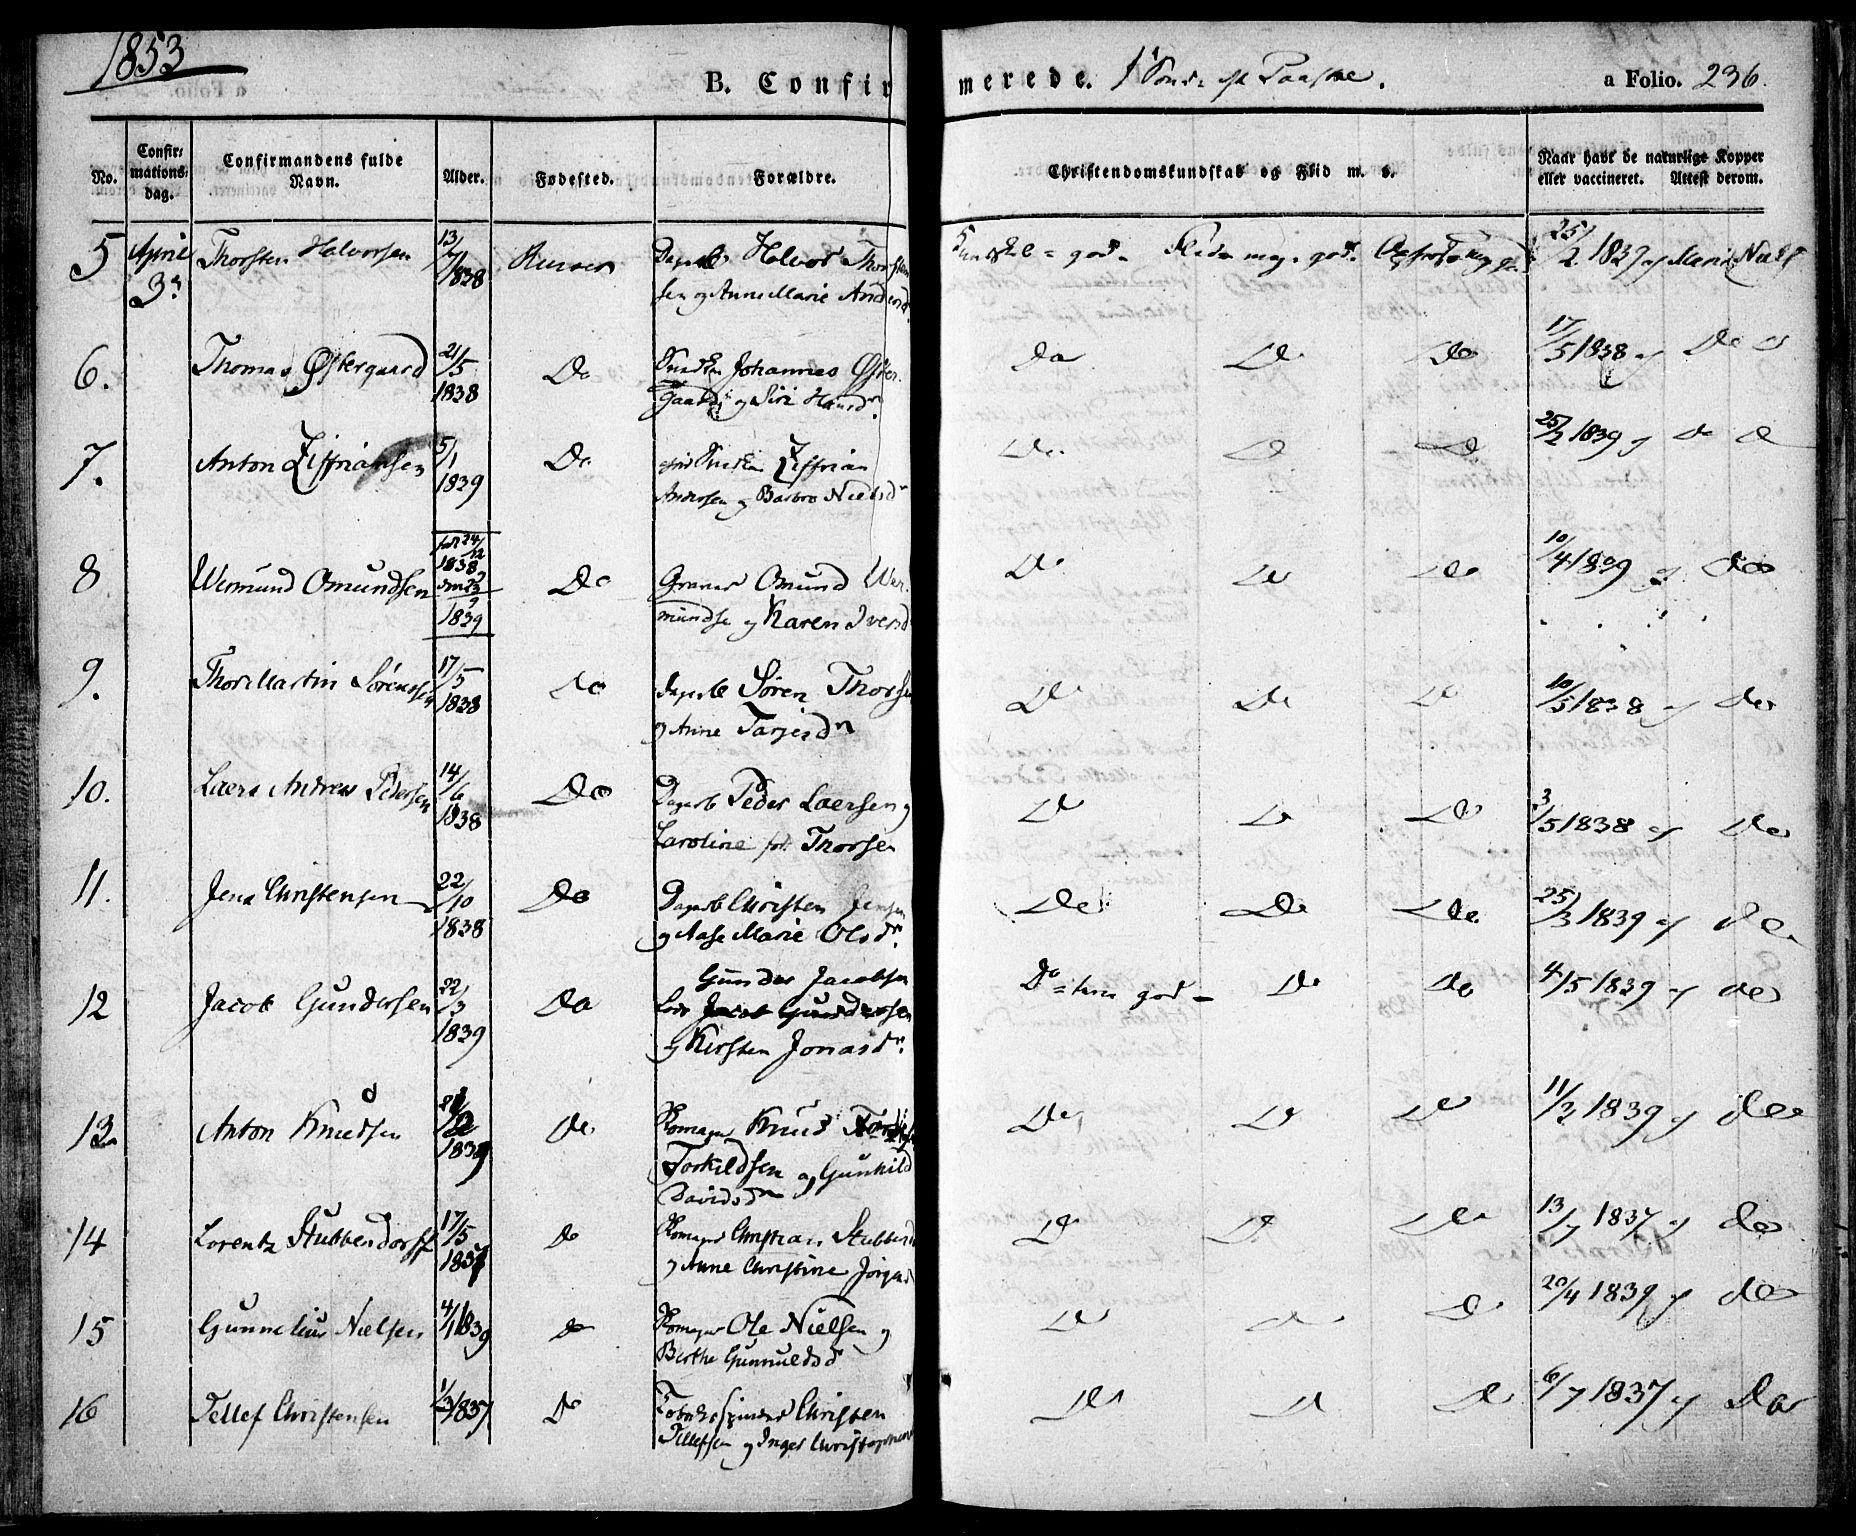 1853
B. Confirmerede. 1 Sønd. eft. Paaske. a Folio. 236.
No. Confirmations-dag. Confirmandens fulde Navn. Alder. Fødested. Forældre. Christendomskundskab og Flid m. v. Naar havt de naturlige Kopper eller vaccineret. Attest derom.
5 April 3. Thorsten Halvorsen 13/ 1838 Dagarb Halvor Thorsten
sen og Anne Marie Anders
god. Flid meg. god. 25/2 1839 og
6. Thomas Østergaard 21/5 1838 Do Johannes Øster
gaard og Siri Hansd.
Do Do Do 17/5 1838 og Do
7. Anton Ziffriansen 5/1 1839 Do Ziffrian
Andersen og Barbro Nielsd
Do D D 25/2 1839 og do
8 Wermund Omundsen 24/12 1838 1839 Do Omund Wer
mundse og Karen Iversd
Do Do Do 10/4 1839 og Do
9. Thor Martin Sørensen 17/5 1838 Do Dagarb Søren Thorsen
og Anne Tarjesd
Do Do D 10/5 1838 og Do
10. Laers Andreas Pedersen 14/6 1838 Do Dagarb Peder Laersen og
Karoline fød. Thorsen
D Do Do 3/5 1838 og Do
11. Jens Christensen 22/10 1838 Do Dagarb Christen Jensen
og Aase Marie Olsd.
Do Do Do 25/3 1839 og do
12 Jacob Gundersen 22/3 1839 Do Gunder Jacobsen
Lods Jacob Gundersen
og Kirsten Jonasd.
Do god Do Do 4/5 1839 og do
13. Anton Knudsen 1839 Do Knud
Torkildsen og Gunhild
Davidsd
Do D D 11/3 1839 og do
14 Lorentz Stubbendorff 17/5 1837 Do Christian Stubbend
og Anne Christine Jørgens
D D Do 13/7 1837 og do
15 Gunnelius Nielsen 4/1 1839 do Ole Nielsen og
Berthe Gunnulds
D D D 20/4 1839 og do
16 Tellef Christensen 1/3 1837 Do Christen
Tellefsen og Inger
Do D D 6/7 1837 og Do